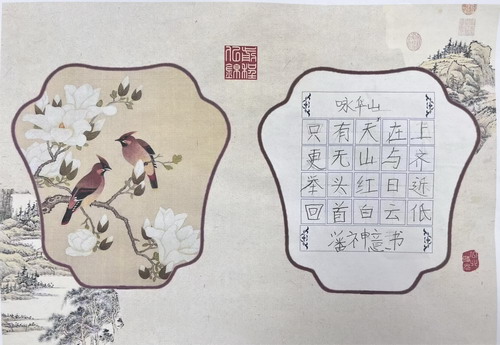 前程
似錦
咏华山
只有天在上
更无山与齐
举头红日近
回首白云低
潘神意书